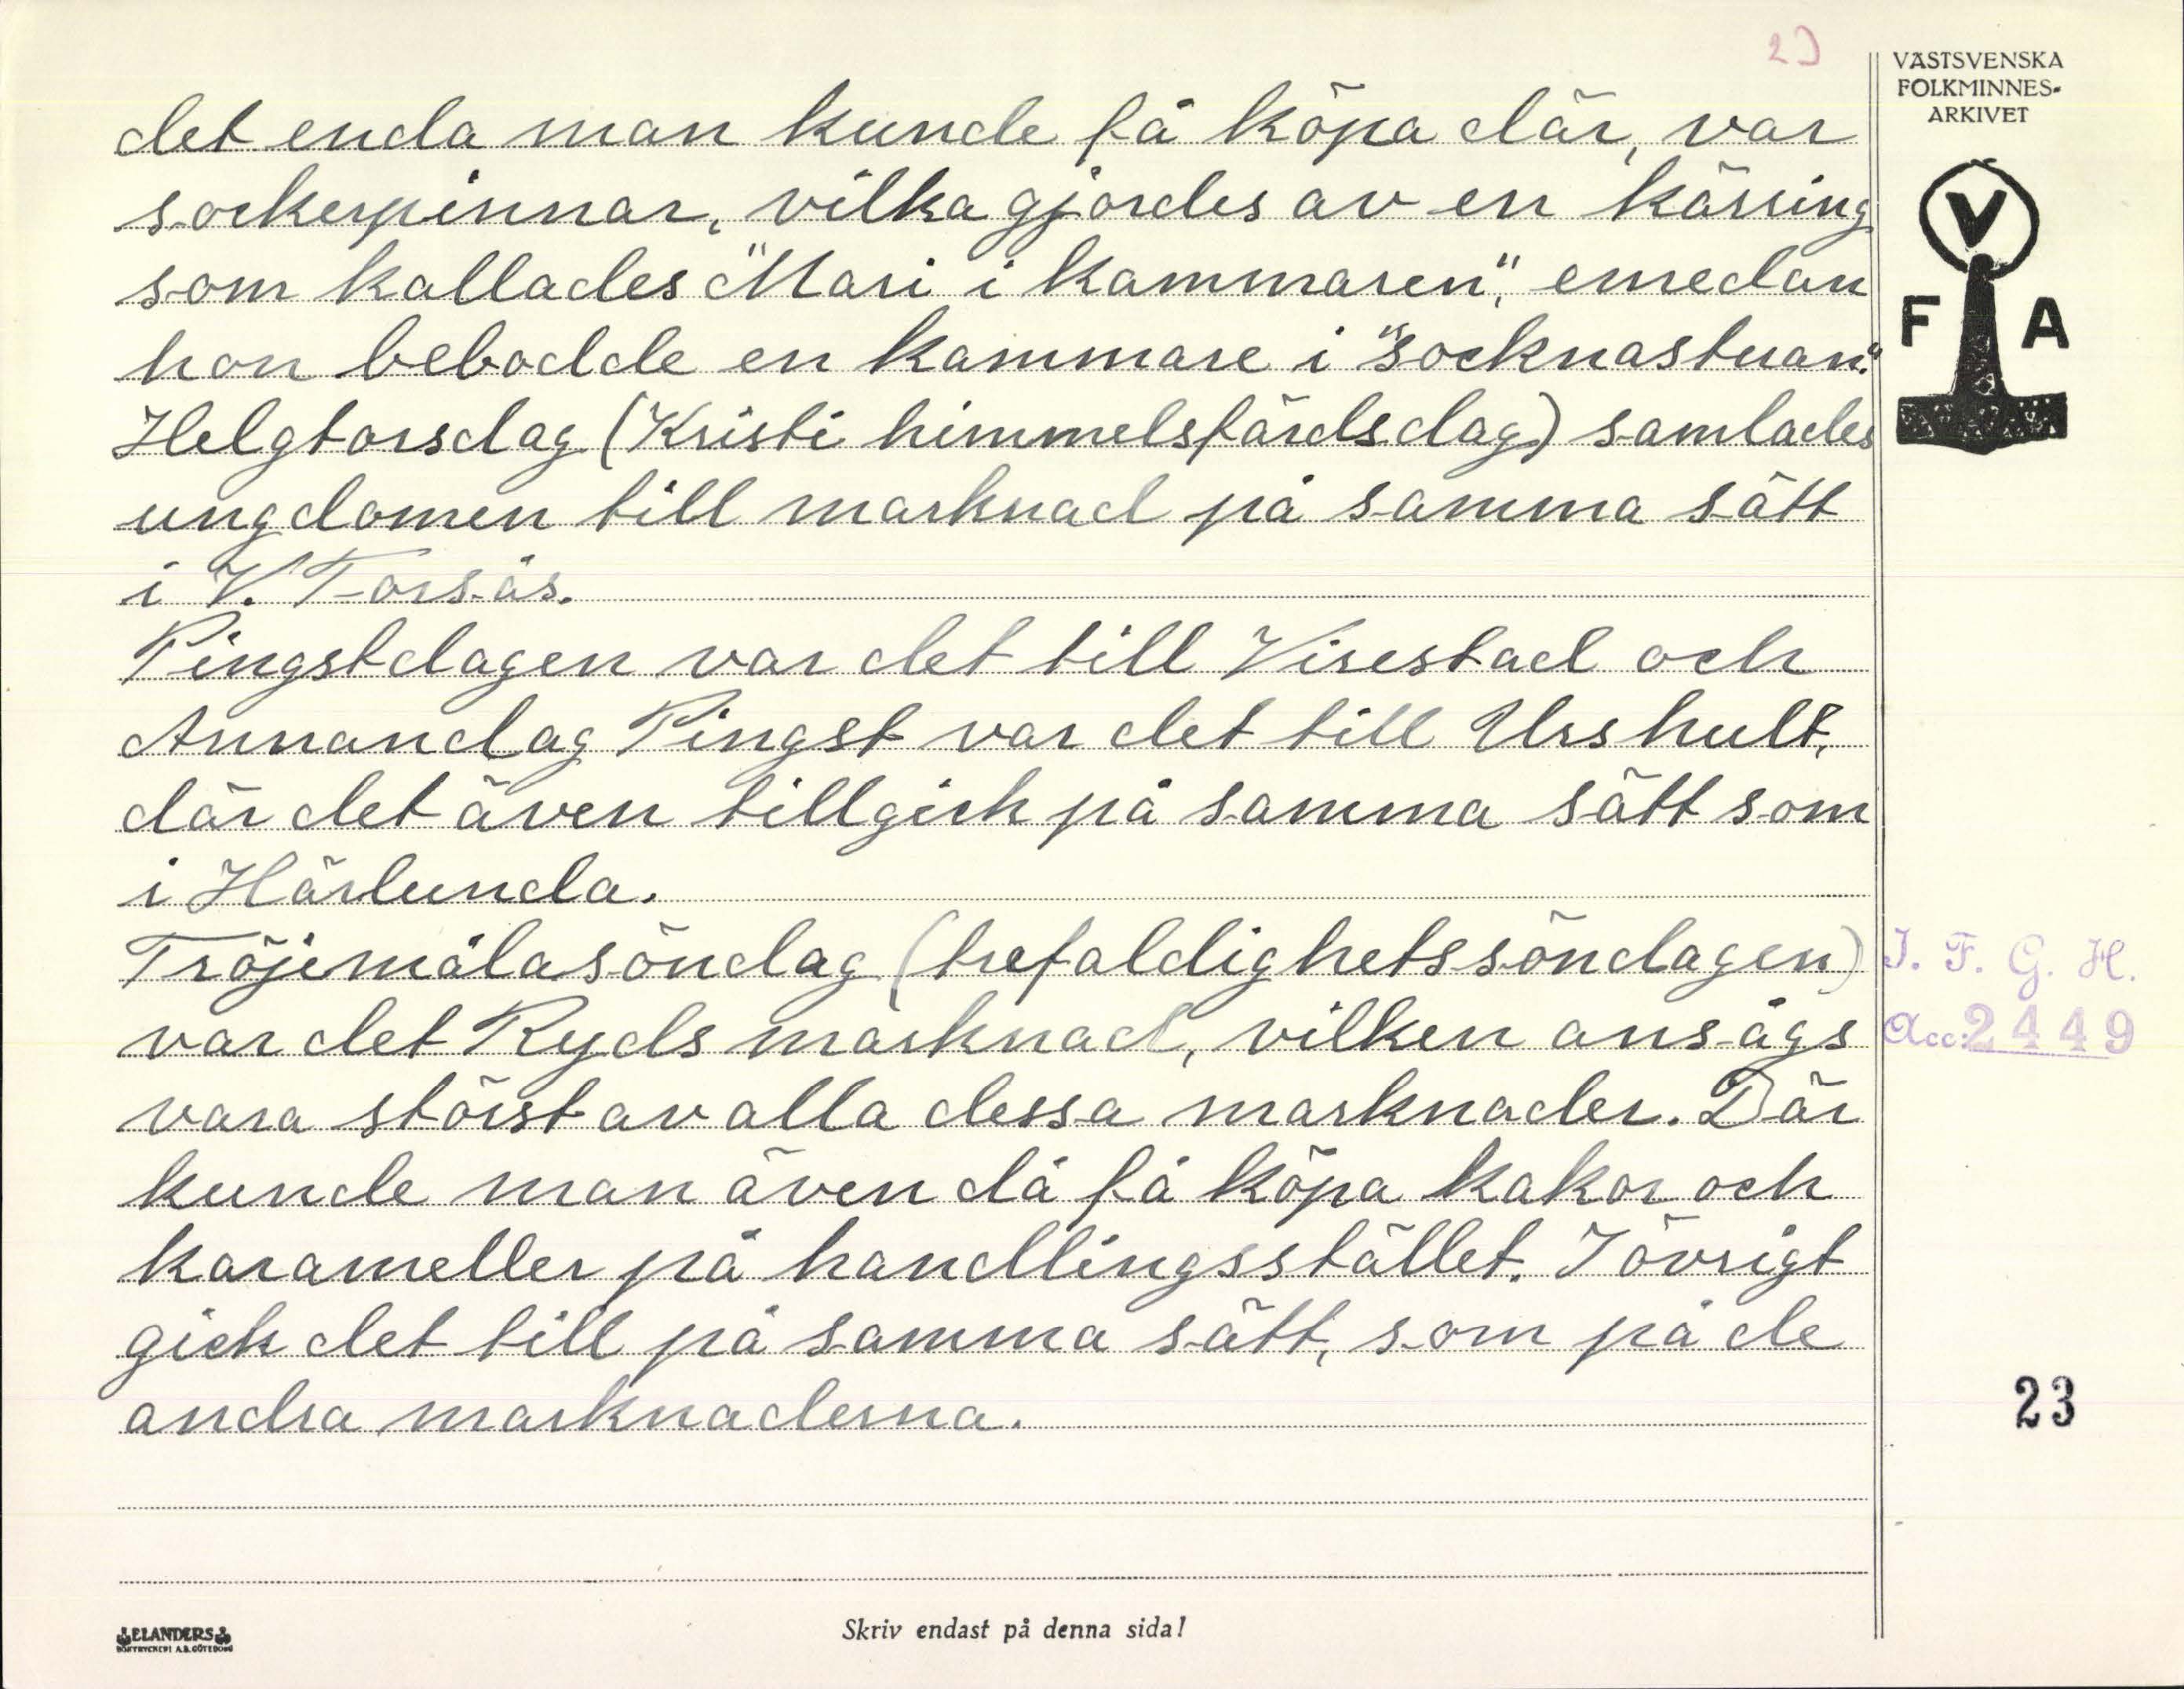 2)
VÄSTSVENSKA
FOLKMINNES-
ARKIVET
V
F A
det enda man kunde få köpa där, var
sockerpinnar, vilka gjordes av en kärring
som kallades "Mari i kammaren", emedan
hon bebodde en kammare i "socknastuan".
Helgtorsdag (Kristi himmelsfärdsdag) samlades
ungdomen till marknad på samma sätt
i V. Torsås.
Pingstdagen var det till Virestad och
Annandag Pingst var det till Urshult,
där det även tillgick på samma sätt som
i Härlunda.
Tröjemålasöndag (trefaldighetssöndagen)
var det Ryds marknad, vilken ansågs
vara störst av alla dessa marknader. Där
kunde man även då få köpa kakor och
karameller på handlingsstället. I övrigt
gick det till på samma sätt, som på de
andra marknaderna.
I. F. G. H.
Acc: 2449
23
ELANDERS
BOKTRYCKERI A.B. GÖTEBORG
Skriv endast på denna sida!